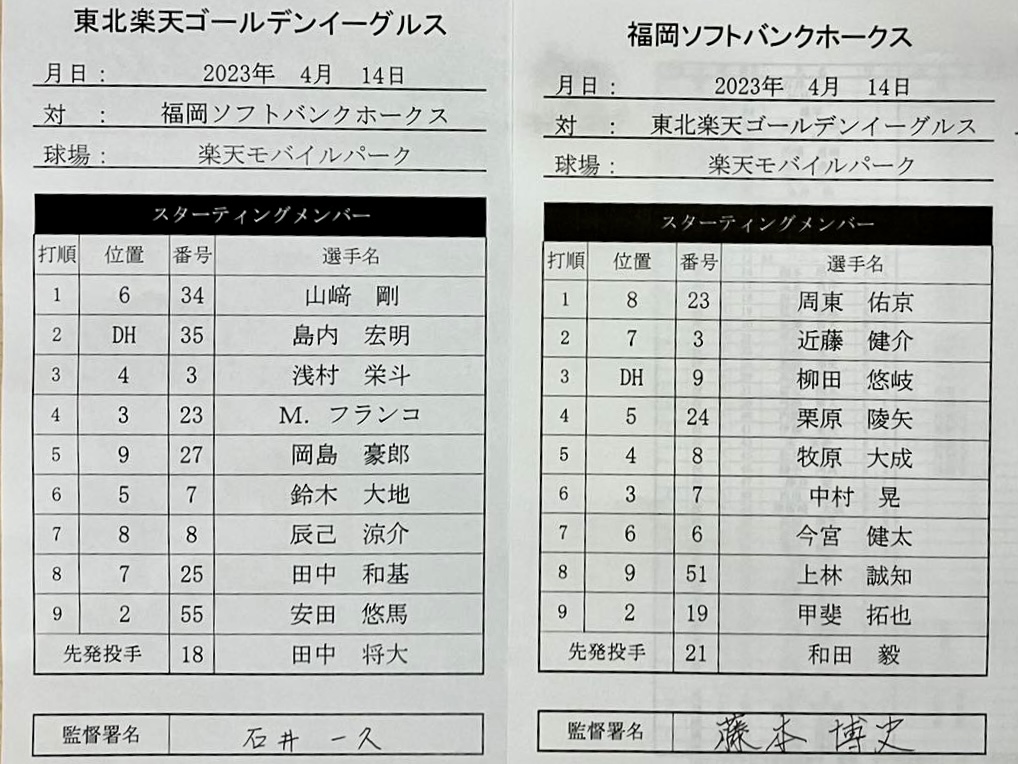 東北楽天ゴールデンイーグルス
月日： 2023年 4月 14日
対 ： 福岡ソフトバンクホークス
球場： 楽天モバイルパーク
スターティングメンバー
打順 位置 番号 選手名
1 6 34 山﨑 剛
2 DH 35 島内 宏明
3 4 3 浅村 栄斗
4 3 23 M. フランコ
5 9 27 岡島 豪郎
6 5 7 鈴木 大地
7 8 8 辰己 涼介
8 7 25 田中 和基
9 2 55 安田 悠馬
先発投手 18 田中 将大
監督署名 石井 一久
福岡ソフトバンクホークス
月日： 2023年 4月 14日
対 ： 東北楽天ゴールデンイーグルス
球場： 楽天モバイルパーク
スターティングメンバー
打順 位置 番号 選手名
1 8 23 周東 佑京
2 7 3 近藤 健介
3 DH 9 柳田 悠岐
4 5 24 栗原 陵矢
5 4 8 牧原 大成
6 3 7 中村 晃
7 6 6 今宮 健太
8 9 51 上林 誠知
9 2 19 甲斐 拓也
先発投手 21 和田 毅
監督署名 藤本 博史